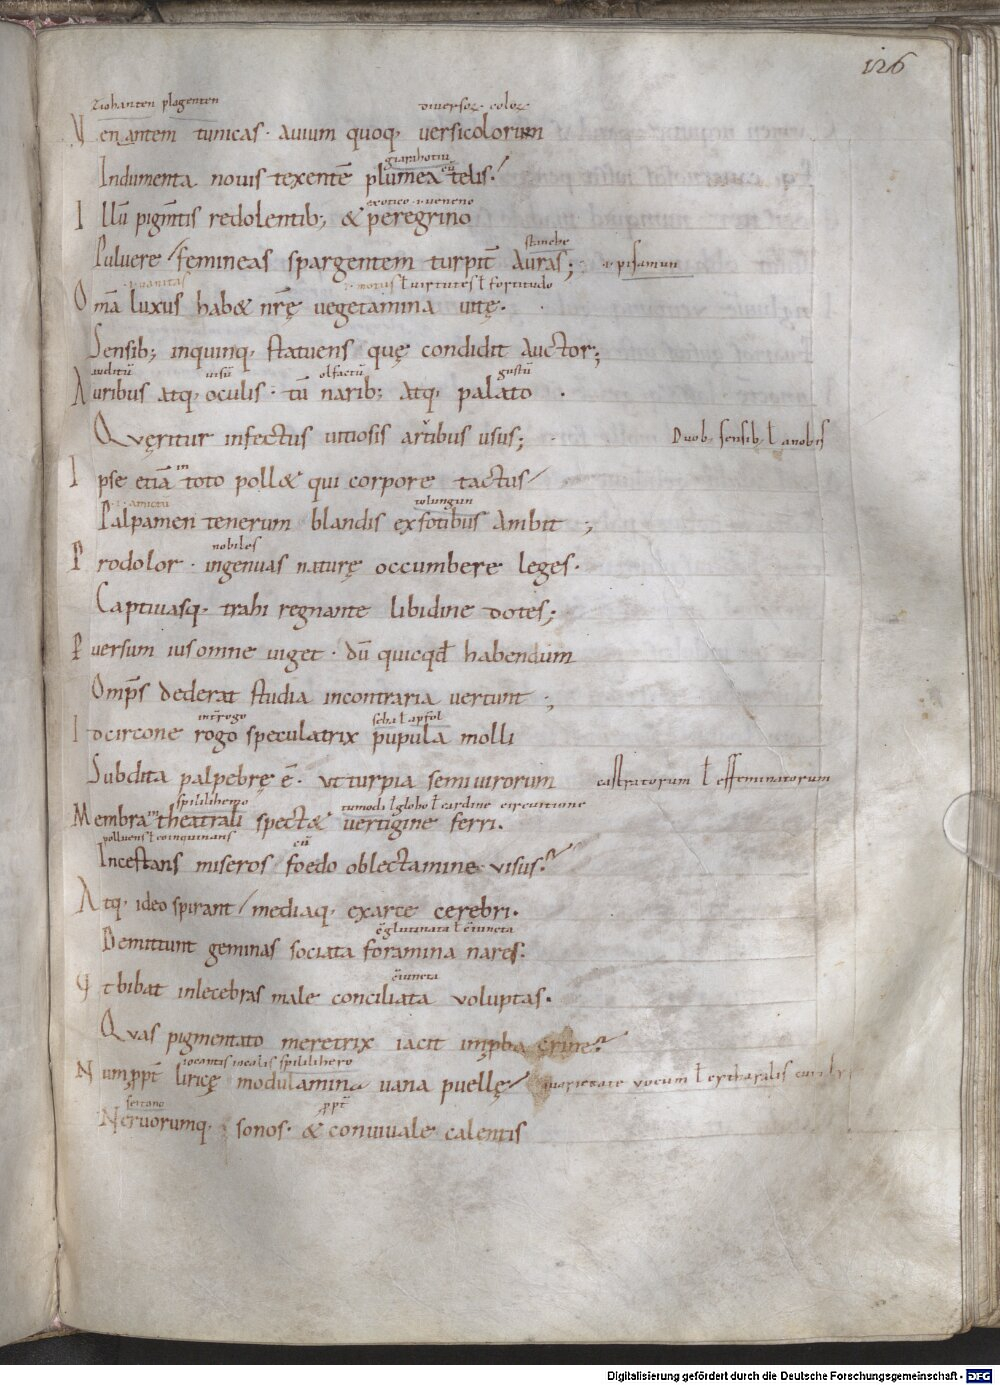 126
ziohanten plagenten diuersoꝝ coloꝝ
Venantem tunicas · auium quoq; versicolorum
giarahotiu
Indumenta nouis texentē plumea telis;
exotico ueneno
Illū pigm̄tis redolentib; & peregrino
Puluere / femineas spargentem turpit̄ auras; pisamun
uanitas motus ł uirtutes ł fortitudo
Om̄a luxus hab& nr̄ę vegetamina uitę·
Sensib; inquinq, statuens quę condidit auctor;
auditū uisū olfactū gustū
Auribus atq, oculis · tū narib; atq, palato ·
Quęritur infectus uitiosis artibus usus; Duob, sensib, ł anobis
in
Ipse etiā toto poll& qui corpore tactus/
amictū
Palpamen tenerum blandis exfotibus ambit ;
nobiles
Prodolor · ingenuas naturę occumbere leges·
Captiuasq, trahi regnante libidine dotes;
Pversum ius omne uiget · dū quicqđ habendum
Omp̄s dederat studia incontraria vertunt ;
int̄rogo seha ł apful
Idcircone rogo speculatrix pupula molli
Subdita palpebrę ē · vt turpia semiuirorum castratorum ł effeminatorum
spililihemo tumodi ł globo ł cardine circuitione
Membra theatrali spect& vertigine ferri·
polluens ł coinquinans
Incestans miseros foedo oblectamine visus?
Atq, ideo spirant / mediaq, exarce cerebri·
cōglutinata ł cōiuncta
Demittunt geminas sociata foramina nares·
cōiuncta
Vt bibat inlecebras male conciliata voluptas·
Quas pigmentato meretrix iacit imp̱ba crine?
spililihero
Num ꝓpt̄ liricę modulamina uana puellę/ uarietate vocum ł
seitono ꝓpt̄
Neruorumq, sonos· & conuiuale calentis
Digitalisierung gefördert durch die Deutsche Forschungsgemeinschaft - DFG